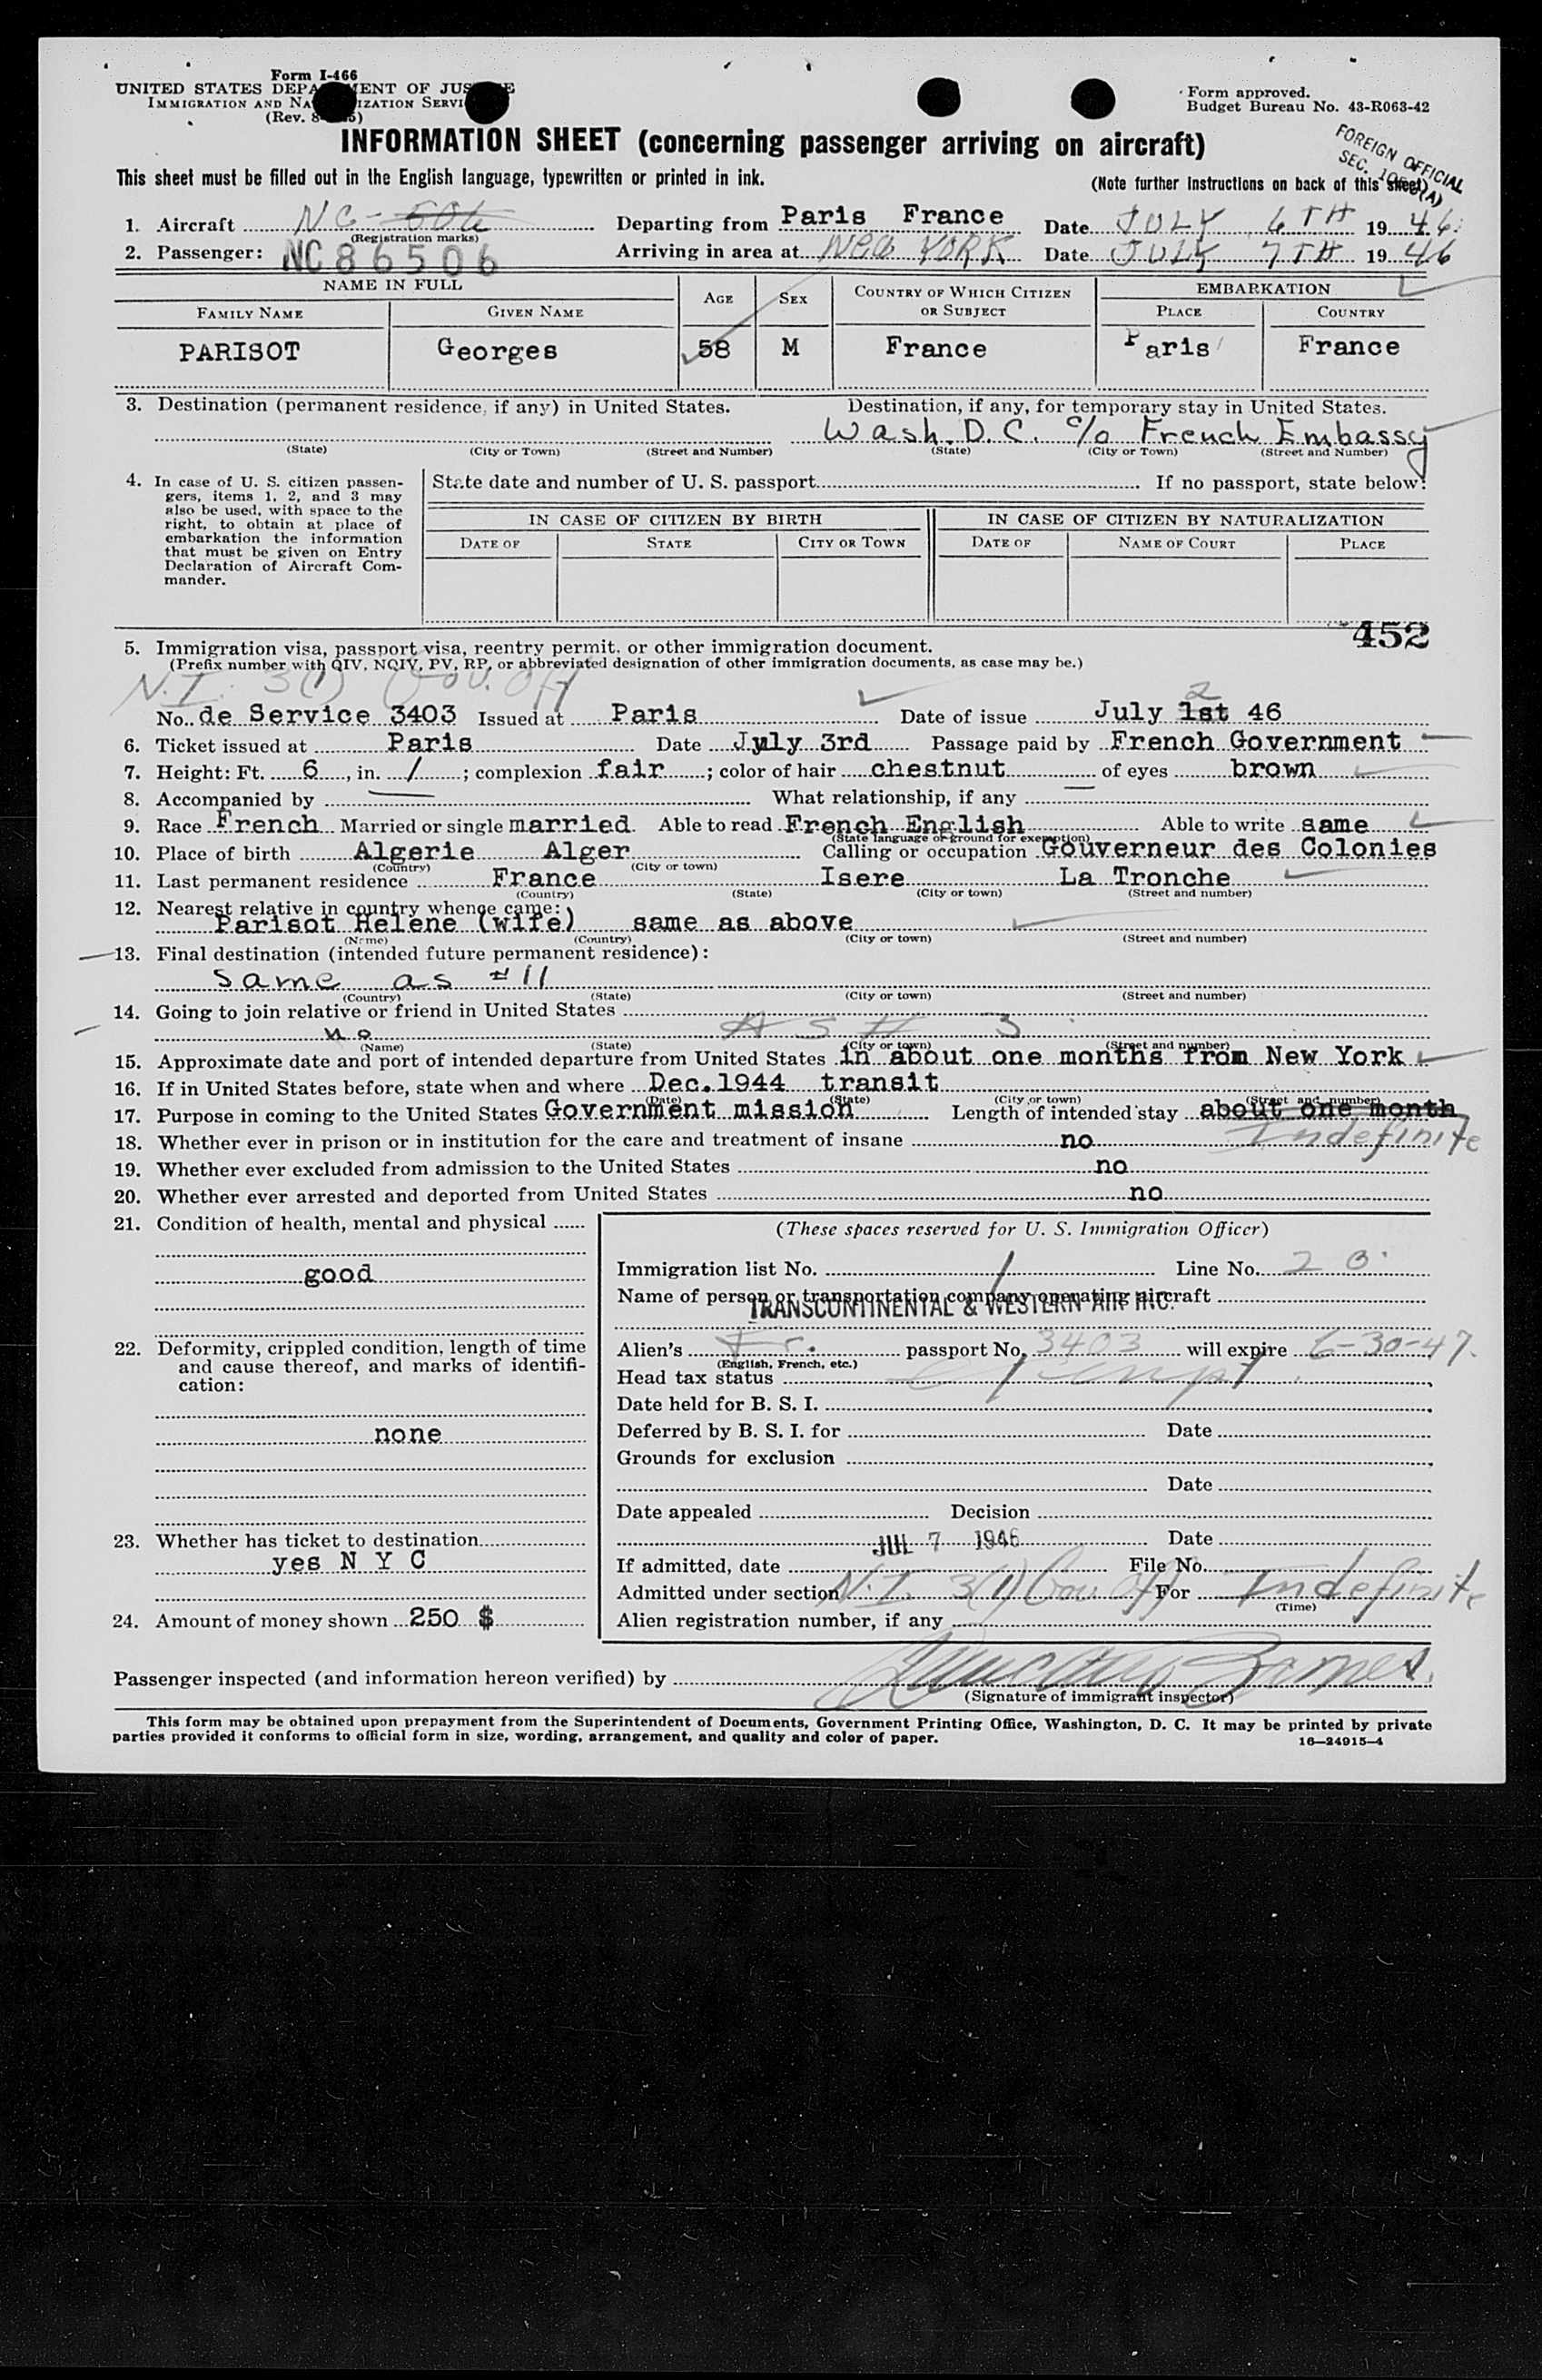 Form I-466
UNITED STATES DEPA MENT OF JUS E
IMMIGRATION AND NA IZATION SERVI
(Rev. 8- )
Form approved.
Budget Bureau No. 43-R063-42
INFORMATION SHEET (concerning passenger arriving on aircraft)
FOREIGN OFFICIAL
SEC.
This sheet must be filled out in the English language, typewritten or printed in ink.
(Note further instructions on back of this sheet)
1. Aircraft NC-506 Departing from Paris France Date JULY 6TH 1946
(Registration marks)
2. Passenger: NC86506 Arriving in area at NEW YORK Date JULY 7TH 1946
NAME IN FULL AGE SEX COUNTRY OF WHICH CITIZEN OR SUBJECT EMBARKATION
FAMILY NAME GIVEN NAME PLACE COUNTRY
PARISOT Georges 58 M France Paris France
3. Destination (permanent residence, if any) in United States. Destination, if any, for temporary stay in United States.
Wash. D.C. c/o French Embassy
(State) (City or Town) (Street and Number) (State) (City or Town) (Street and Number)
4. In case of U. S. citizen passen-
gers, items 1, 2, and 3 may
also be used, with space to the
right, to obtain at place of
embarkation the information
that must be given on Entry
Declaration of Aircraft Com-
mander.
State date and number of U. S. passport If no passport, state below:
IN CASE OF CITIZEN BY BIRTH IN CASE OF CITIZEN BY NATURALIZATION
DATE OF STATE CITY OR TOWN DATE OF NAME OF COURT PLACE
452
5. Immigration visa, passport visa, reentry permit, or other immigration document.
(Prefix number with QIV, NQIV, PV, RP, or abbreviated designation of other immigration documents, as case may be.)
N.I. 3(1) Gov. Off
2
No. de Service 3403 Issued at Paris Date of issue July 1st 46
6. Ticket issued at Paris Date July 3rd Passage paid by French Government
7. Height: Ft. 6, in. 1; complexion fair; color of hair chestnut of eyes brown
8. Accompanied by — What relationship, if any —
9. Race French Married or single married. Able to read French English Able to write same
(State language or ground for exemption)
10. Place of birth Algerie Alger Calling or occupation Gouverneur des Colonies
(Country) (City or town)
11. Last permanent residence France Isere La Tronche
(Country) (State) (City or town) (Street and number)
12. Nearest relative in country whence came:
Parisot Helene (wife) same as above
(Name) (Country) (City or town) (Street and number)
13. Final destination (intended future permanent residence):
same as #11
(Country) (State) (City or town) (Street and number)
14. Going to join relative or friend in United States
no AS # 3
(Name) (State) (City or town) (Street and number)
15. Approximate date and port of intended departure from United States in about one months from New York
16. If in United States before, state when and where Dec.1944 transit
(Date) (State) (City or town) (Street and number)
17. Purpose in coming to the United States Government mission Length of intended stay about one month
Indefinite
18. Whether ever in prison or in institution for the care and treatment of insane no
19. Whether ever excluded from admission to the United States no
20. Whether ever arrested and deported from United States no
21. Condition of health, mental and physical
good
22. Deformity, crippled condition, length of time
and cause thereof, and marks of identifi-
cation:
none
23. Whether has ticket to destination
yes N Y C
24. Amount of money shown 250 $
(These spaces reserved for U. S. Immigration Officer)
Immigration list No. 1 Line No. 23
Name of person or transportation company operating aircraft
TRANSCONTINENTAL & WESTERN AIR INC.
Alien's Fr. passport No. 3403 will expire 6-30-47.
(English, French, etc.)
Head tax status exempt
Date held for B. S. I.
Deferred by B. S. I. for Date
Grounds for exclusion
Date
Date appealed Decision
JUL 7 1946 Date
If admitted, date File No.
Admitted under section N.I. 3(1) Gov Off For Indefinite
(Time)
Alien registration number, if any
Passenger inspected (and information hereon verified) by
(Signature of immigrant inspector)
This form may be obtained upon prepayment from the Superintendent of Documents, Government Printing Office, Washington, D. C. It may be printed by private
parties provided it conforms to official form in size, wording, arrangement, and quality and color of paper.
16—24915-4